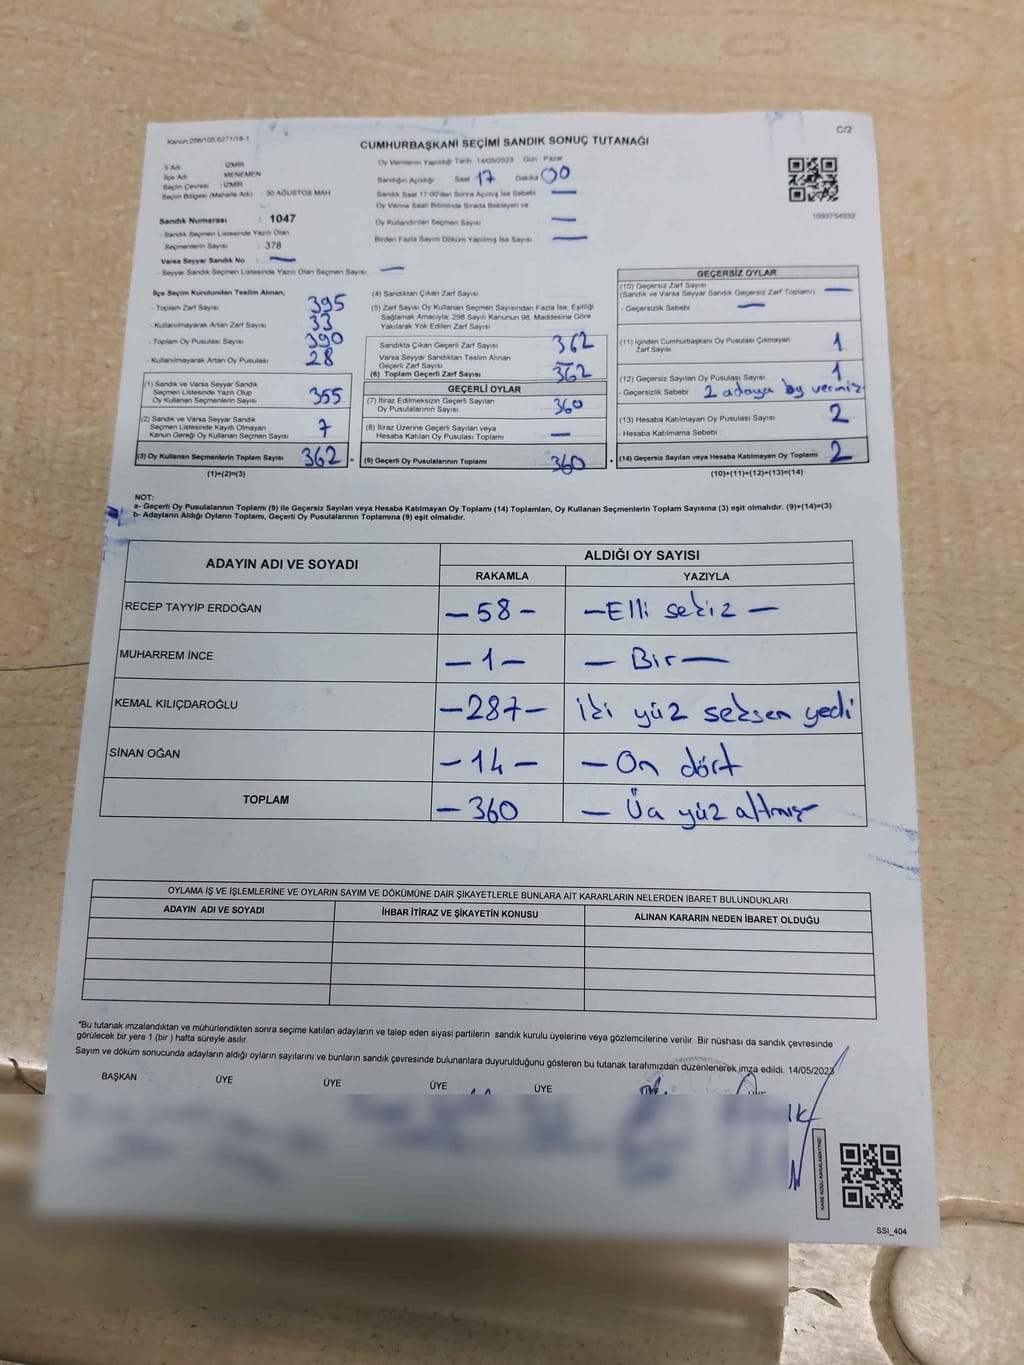 Kanun:298/105;6271/18-1
C/2
CUMHURBAŞKANI SEÇİMİ SANDIK SONUÇ TUTANAĞI
İl Adı : İZMİR
İlçe Adı : MENEMEN
Seçim Çevresi : İZMİR
Seçim Bölgesi (Mahalle Adı) : 30 AĞUSTOS MAH
Sandık Numarası : 1047
- Sandık Seçmen Listesinde Yazılı Olan
Seçmenlerin Sayısı : 378
Varsa Seyyar Sandık No : —
- Seyyar Sandık Seçmen Listesinde Yazılı Olan Seçmen Sayısı : —
Oy Vermenin Yapıldığı Tarih 14/05/2023 Gün : Pazar
Sandığın Açıldığı Saat 17 Dakika 00
Sandık Saat 17:00'den Sonra Açılmış İse Sebebi —
Oy Verme Saati Bitiminde Sırada Bekleyen ve
Oy Kullandırılan Seçmen Sayısı —
Birden Fazla Sayım Döküm Yapılmış İse Sayısı —
1093754332
İlçe Seçim Kurulundan Teslim Alınan;
- Toplam Zarf Sayısı 395
- Kullanılmayarak Artan Zarf Sayısı 33
- Toplam Oy Pusulası Sayısı 390
- Kullanılmayarak Artan Oy Pusulası 28
(1) Sandık ve Varsa Seyyar Sandık
Seçmen Listesinde Yazılı Olup
Oy Kullanan Seçmenlerin Sayısı 355
(2) Sandık ve Varsa Seyyar Sandık
Seçmen Listesinde Kayıtlı Olmayan
Kanun Gereği Oy Kullanan Seçmen Sayısı 7
(3) Oy Kullanan Seçmenlerin Toplam Sayısı 362 =
(1)+(2)=(3)
(4) Sandıktan Çıkan Zarf Sayısı
(5) Zarf Sayısı Oy Kullanan Seçmen Sayısından Fazla İse, Eşitliği
Sağlamak Amacıyla; 298 Sayılı Kanunun 98. Maddesine Göre
Yakılarak Yok Edilen Zarf Sayısı
Sandıkta Çıkan Geçerli Zarf Sayısı 362
Varsa Seyyar Sandıktan Teslim Alınan
Geçerli Zarf Sayısı —
(6) Toplam Geçerli Zarf Sayısı 362
GEÇERLİ OYLAR
(7) İtiraz Edilmeksizin Geçerli Sayılan
Oy Pusulalarının Sayısı 360
(8) İtiraz Üzerine Geçerli Sayılan veya
Hesaba Katılan Oy Pusulası Toplamı —
(9) Geçerli Oy Pusulalarının Toplamı 360 +
GEÇERSİZ OYLAR
(10) Geçersiz Zarf Sayısı
(Sandık ve Varsa Seyyar Sandık Geçersiz Zarf Toplamı) —
- Geçersizlik Sebebi : —
(11) İçinden Cumhurbaşkanı Oy Pusulası Çıkmayan
Zarf Sayısı 1
(12) Geçersiz Sayılan Oy Pusulası Sayısı 1
- Geçersizlik Sebebi : 2 adaya oy vermiş
(13) Hesaba Katılmayan Oy Pusulası Sayısı 2
- Hesaba Katılmama Sebebi :
(14) Geçersiz Sayılan veya Hesaba Katılmayan Oy Toplamı 2
(10)+(11)+(12)+(13)=(14)
NOT:
a- Geçerli Oy Pusulalarının Toplamı (9) ile Geçersiz Sayılan veya Hesaba Katılmayan Oy Toplamı (14) Toplamları, Oy Kullanan Seçmenlerin Toplam Sayısına (3) eşit olmalıdır. (9)+(14)=(3)
b- Adayların Aldığı Oyların Toplamı, Geçerli Oy Pusulalarının Toplamına (9) eşit olmalıdır.
ADAYIN ADI VE SOYADI
ALDIĞI OY SAYISI
RAKAMLA YAZIYLA
RECEP TAYYİP ERDOĞAN — 58 — — Elli sekiz —
MUHARREM İNCE — 1 — — Bir —
KEMAL KILIÇDAROĞLU — 287 — İki yüz seksen yedi
SİNAN OĞAN — 14 — — On dört
TOPLAM — 360 — Üç yüz altmış
OYLAMA İŞ VE İŞLEMLERİNE VE OYLARIN SAYIM VE DÖKÜMÜNE DAİR ŞİKAYETLERLE BUNLARA AİT KARARLARIN NELERDEN İBARET BULUNDUKLARI
ADAYIN ADI VE SOYADI İHBAR İTİRAZ VE ŞİKAYETİN KONUSU ALINAN KARARIN NEDEN İBARET OLDUĞU
*Bu tutanak imzalandıktan ve mühürlendikten sonra seçime katılan adayların ve talep eden siyasi partilerin sandık kurulu üyelerine veya gözlemcilerine verilir. Bir nüshası da sandık çevresinde
görülecek bir yere 1 (bir) hafta süreyle asılır.
Sayım ve döküm sonucunda adayların aldığı oyların sayılarını ve bunların sandık çevresinde bulunanlara duyurulduğunu gösteren bu tutanak tarafımızdan düzenlenerek imza edildi. 14/05/2023
BAŞKAN ÜYE ÜYE ÜYE ÜYE ÜYE ÜYE
KARE KODU KARALAMAYINIZ!
SSI_404